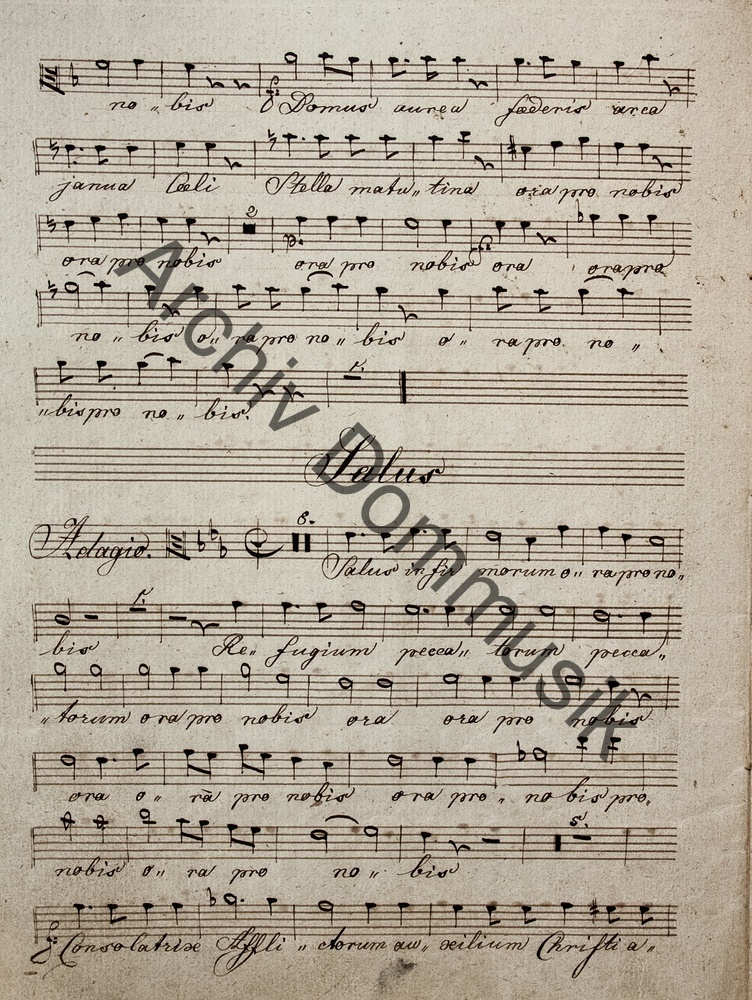 no „ bis f. Domus aurea fœderis arca
janua Cœli Stella matu „ tina ora pro nobis
2
ora pro nobis p. ora pro nobis f. ora orapro
no „ bis o „ ra pro no „ bis o „ ra pro no „
„ bis pro no „ bis.
1.
Salus
Adagio. 8.
Salus in fir morum o „ ra pro no „
1.
bis Re „ fugium pecca „ torum pecca „
„ torum ora pro nobis ora ora pro nobis
ora o „ ra pro nobis ora pro „ nobis pro „
5.
nobis o „ ra pro no „ bis
f. Consolatrix Affli „ ctorum au „ xilium Christia „
Archiv Dommusik